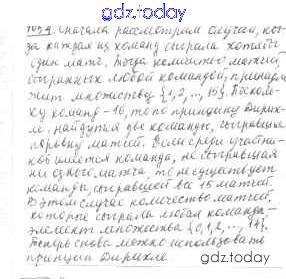 gdz.today
Сначала рассмотрим случай, ког-
да каждая из команд сыграла хотя бы
один матч. Тогда количество матчей,
сыгранных любой командой, принадле-
жит множеству {1,2, ..., 15}. Посколь-
ку команд - 16, то по принципу Дирих-
ле, найдутся две команды, сыгравшие
поровну матчей. Если среди участни-
ков имеется команда, не сыгравшая
ни одного матча, то не существует
команды, сыгравшей все 15 матчей.
В этом случае количество матчей,
которые сыграла любая команда-
элемент множества {0,1,2, ..., 14}.
Теперь снова можно использовать
принцип Дирихле.
gdz.today